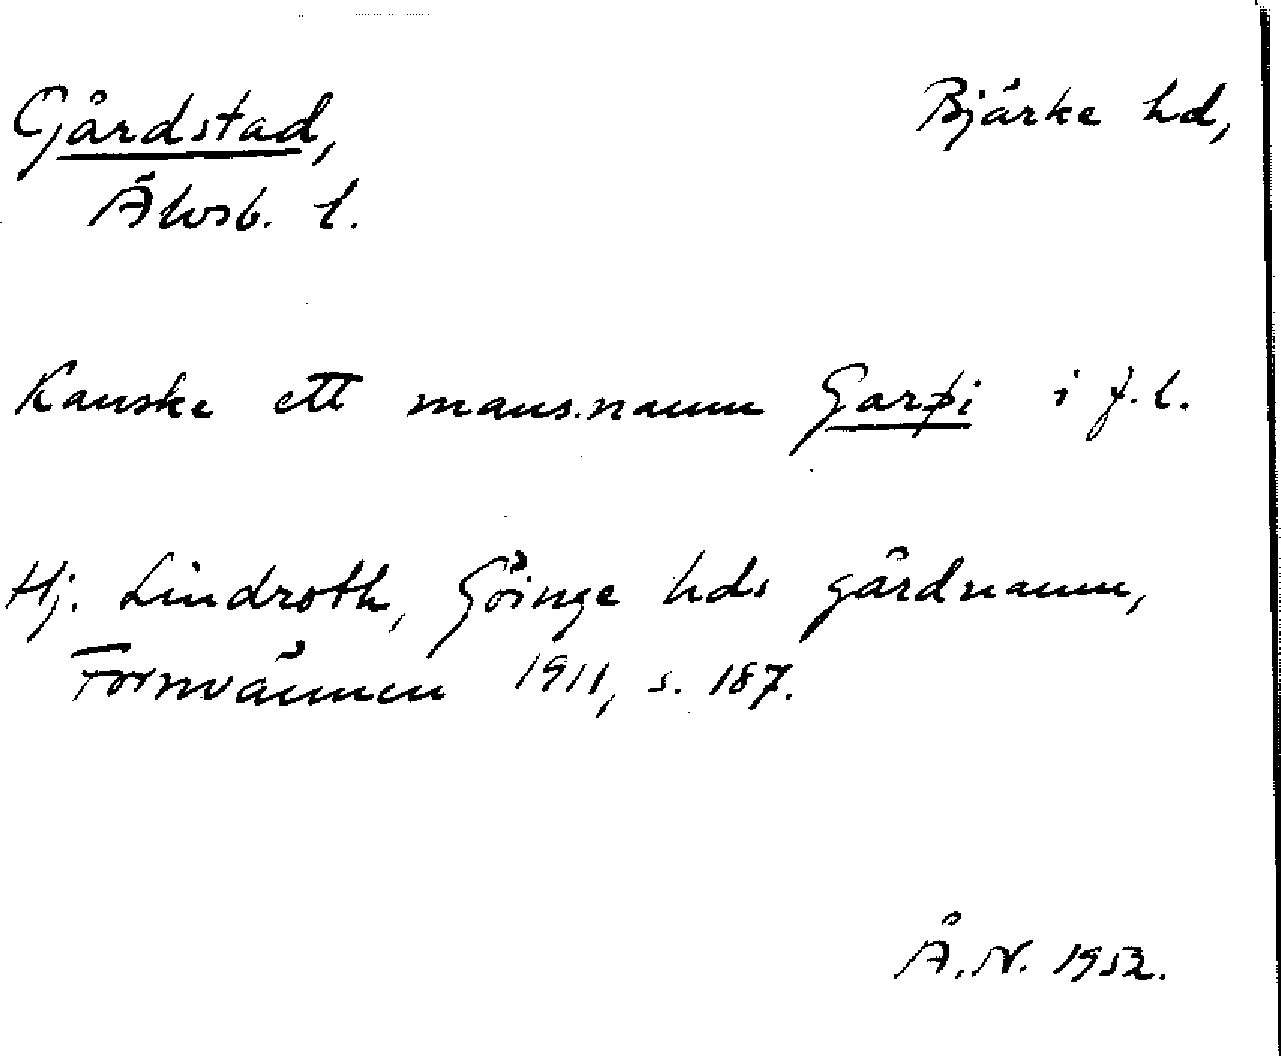 Gårdstad, Bjärke hd,
Älvsb. l.
Kanske ett mansnamn Garþi i f.l.
Hj. Lindroth, Göinge hds gårdnamn,
Fornvännen 1911, s. 187.
Å.N. 1952.